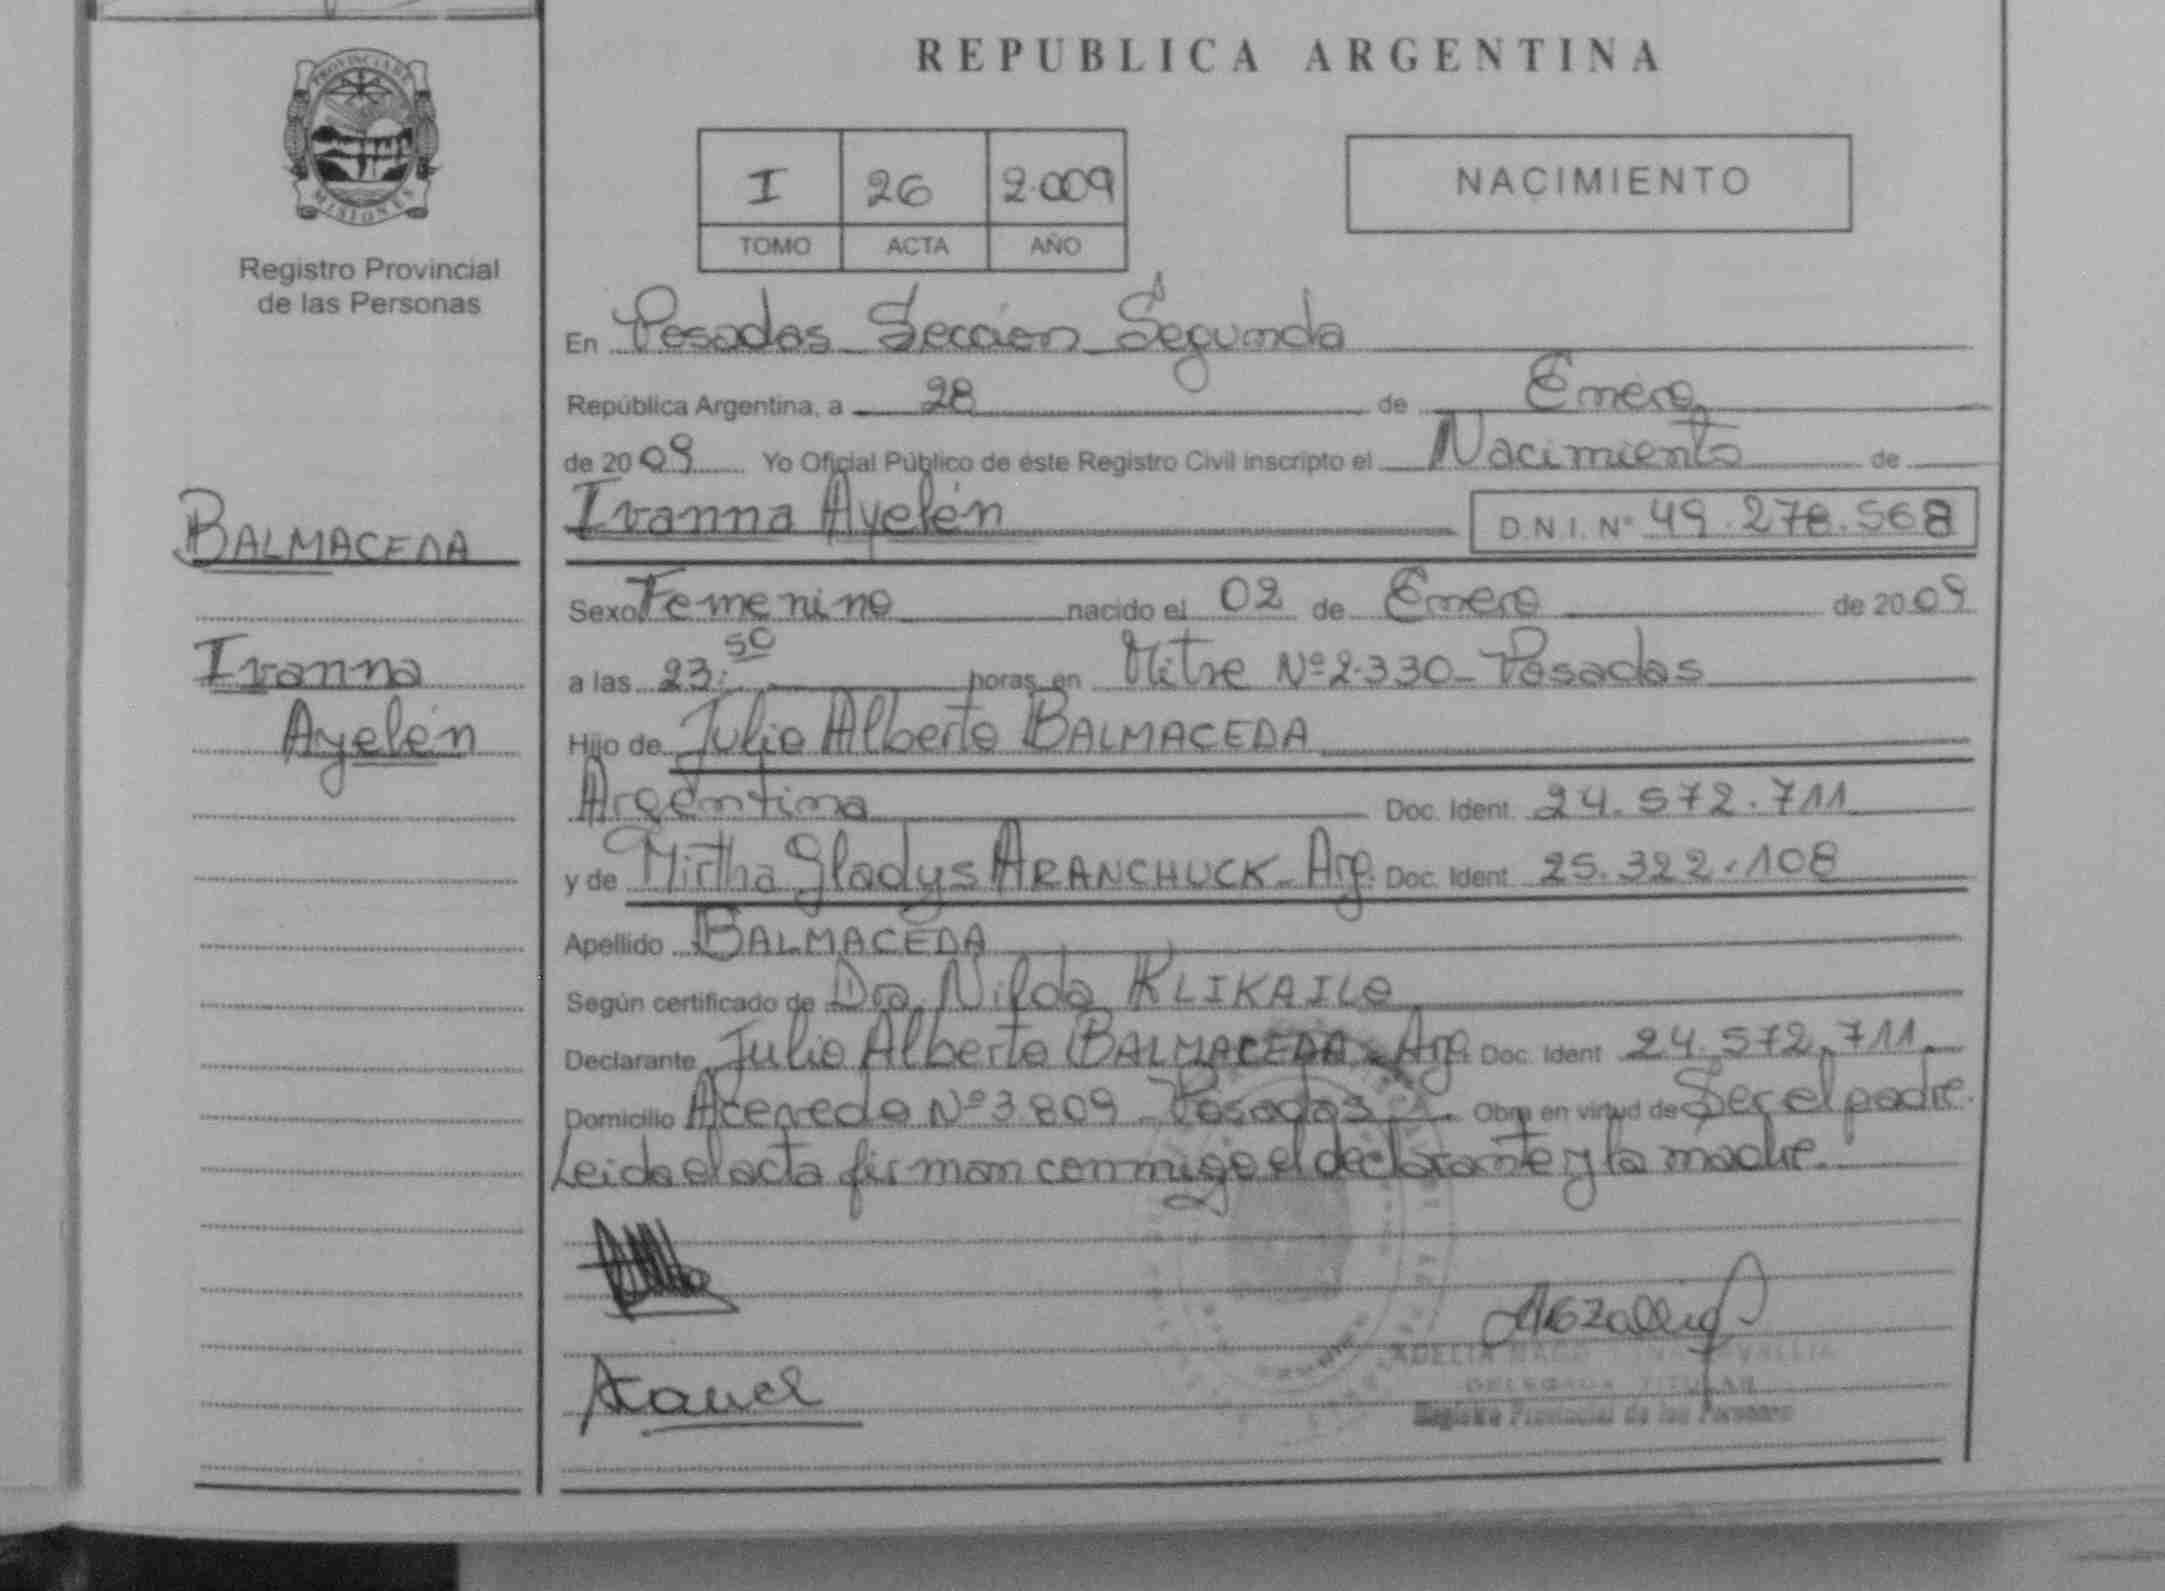 REPUBLICA ARGENTINA
PROVINCIA DE
MISIONES
Registro Provincial
de las Personas
I 26 2.009
TOMO ACTA AÑO
NACIMIENTO
En Posadas Sección Segunda
República Argentina, a 28 de Enero
de 2009 Yo Oficial Público de éste Registro Civil inscripto el Nacimiento de
BALMACEDA
Ivanna Ayelén D.N.I. Nº 49.278.568
Sexo Femenino nacido el 02 de Enero de 2009
Ivanna
a las 23:50 horas, en Mitre Nº 2.330 - Posadas
Ayelén
Hijo de Julio Alberto BALMACEDA
Argentina Doc. Ident. 24.572.711
y de Mirtha Gladys ARANCHUCK - Arg. Doc. Ident. 25.322.108
Apellido BALMACEDA
Según certificado de Dra. Nilda KLIKAILO
Declarante Julio Alberto BALMACEDA - Arg. Doc. Ident 24.572.711.
Domicilio Acevedo Nº 3809 - Posadas - Obra en virtud de Ser el padre.
Leida el acta firman conmigo el declarante y la madre.
ADELIA
DELEGADA TITULAR
Registro Provincial de las Personas